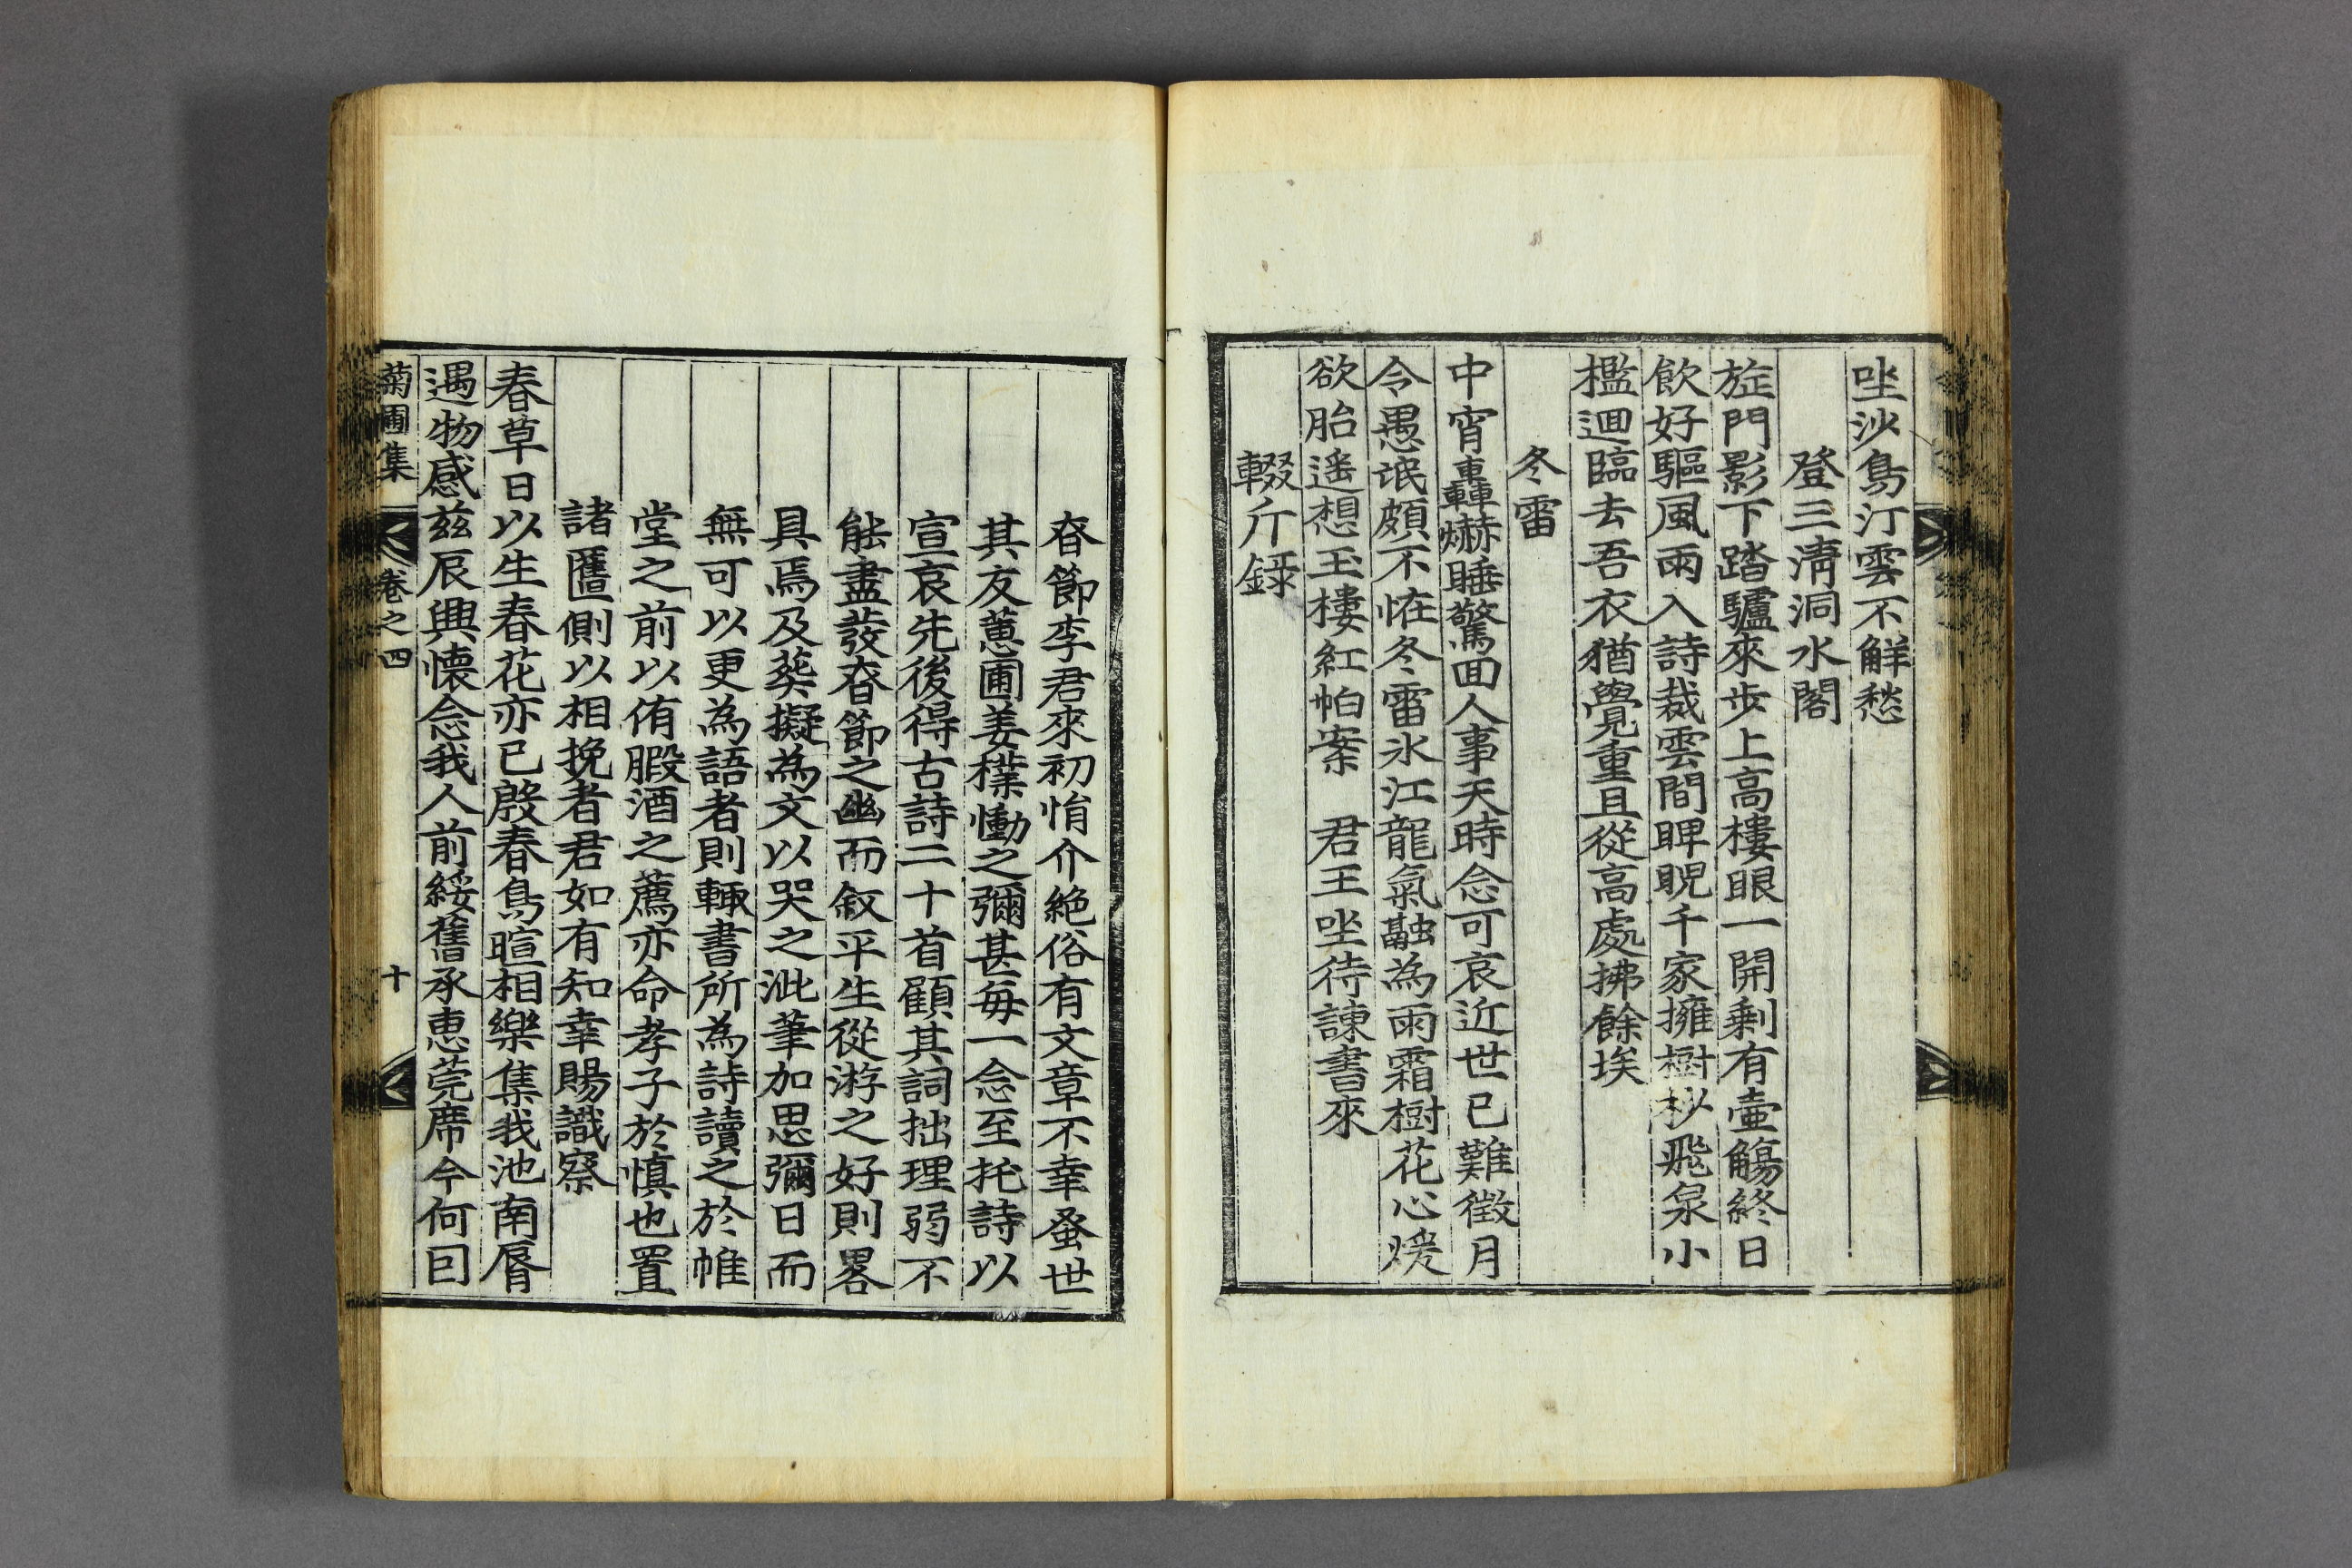 坐沙鳥汀雲不解愁
登三淸洞水閣
旋門影下踏驢來步上高樓眼一開剩有壷觴終日
飮好驅風雨入詩裁雲間睥睨千家擁樹杪飛泉小
檻迴臨去吾衣猶覺重且從高處拂餘埃
冬雷
中宵轟爀睡驚回人事天時念可哀近世已難徵月
令愚氓頗不恠冬雷氷江龍氣融為雨霜樹花心煖
欲胎遥想玉樓紅帕案 君王坐待諫書來
輟斤錄
昚節李君來初悁介絶俗有文章不幸蚤世
其友蔥圃姜檏慟之彌甚每一念至托詩以
宣哀先後得古詩二十首顧其詞拙理弱不
能盡發昚節之幽而叙平生從游之好則畧
具焉及葬擬為文以哭之泚筆加思彌日而
無可以更為語者則輒書所為詩讀之於帷
堂之前以侑腶酒之薦亦命孝子於慎也置
諸匶側以相挽者君如有知幸賜識察
春草日以生春花亦已殷春鳥暄相樂集我池南脣
遇物感玆辰興懷念我人前綏舊承惠莞席今何囙
菊圃集 卷之四 十